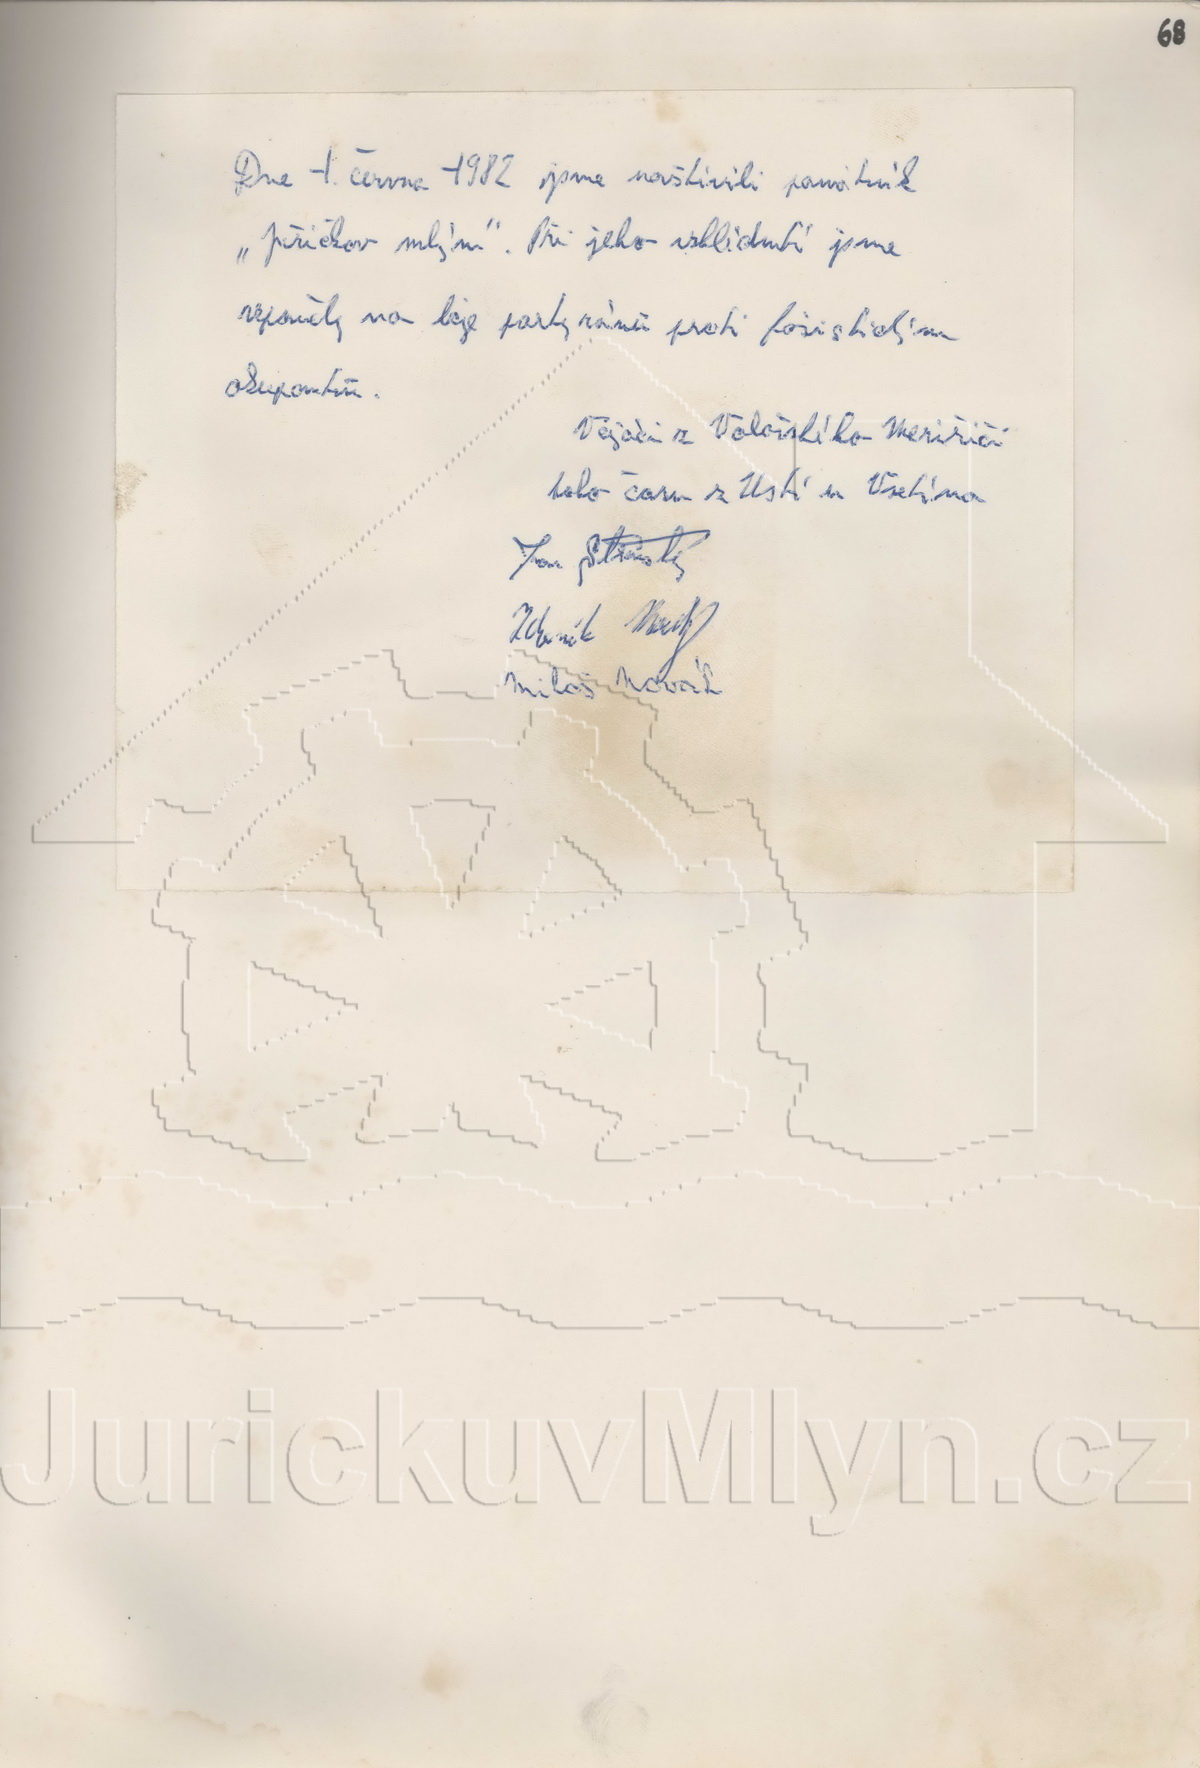 68
Dne 1. června 1982 jsme navštívili památník
„Juříčkov mlýn". Při jeho zhlédnutí jsme
vzpoměly na boje partyzánů proti fašistickým
okupantům.
Vojáci z Valašského Meziříčí
toho času z Ústí u Vsetína
Jan
Zdeněk
Miloš Novák
JurickuvMlyn.cz